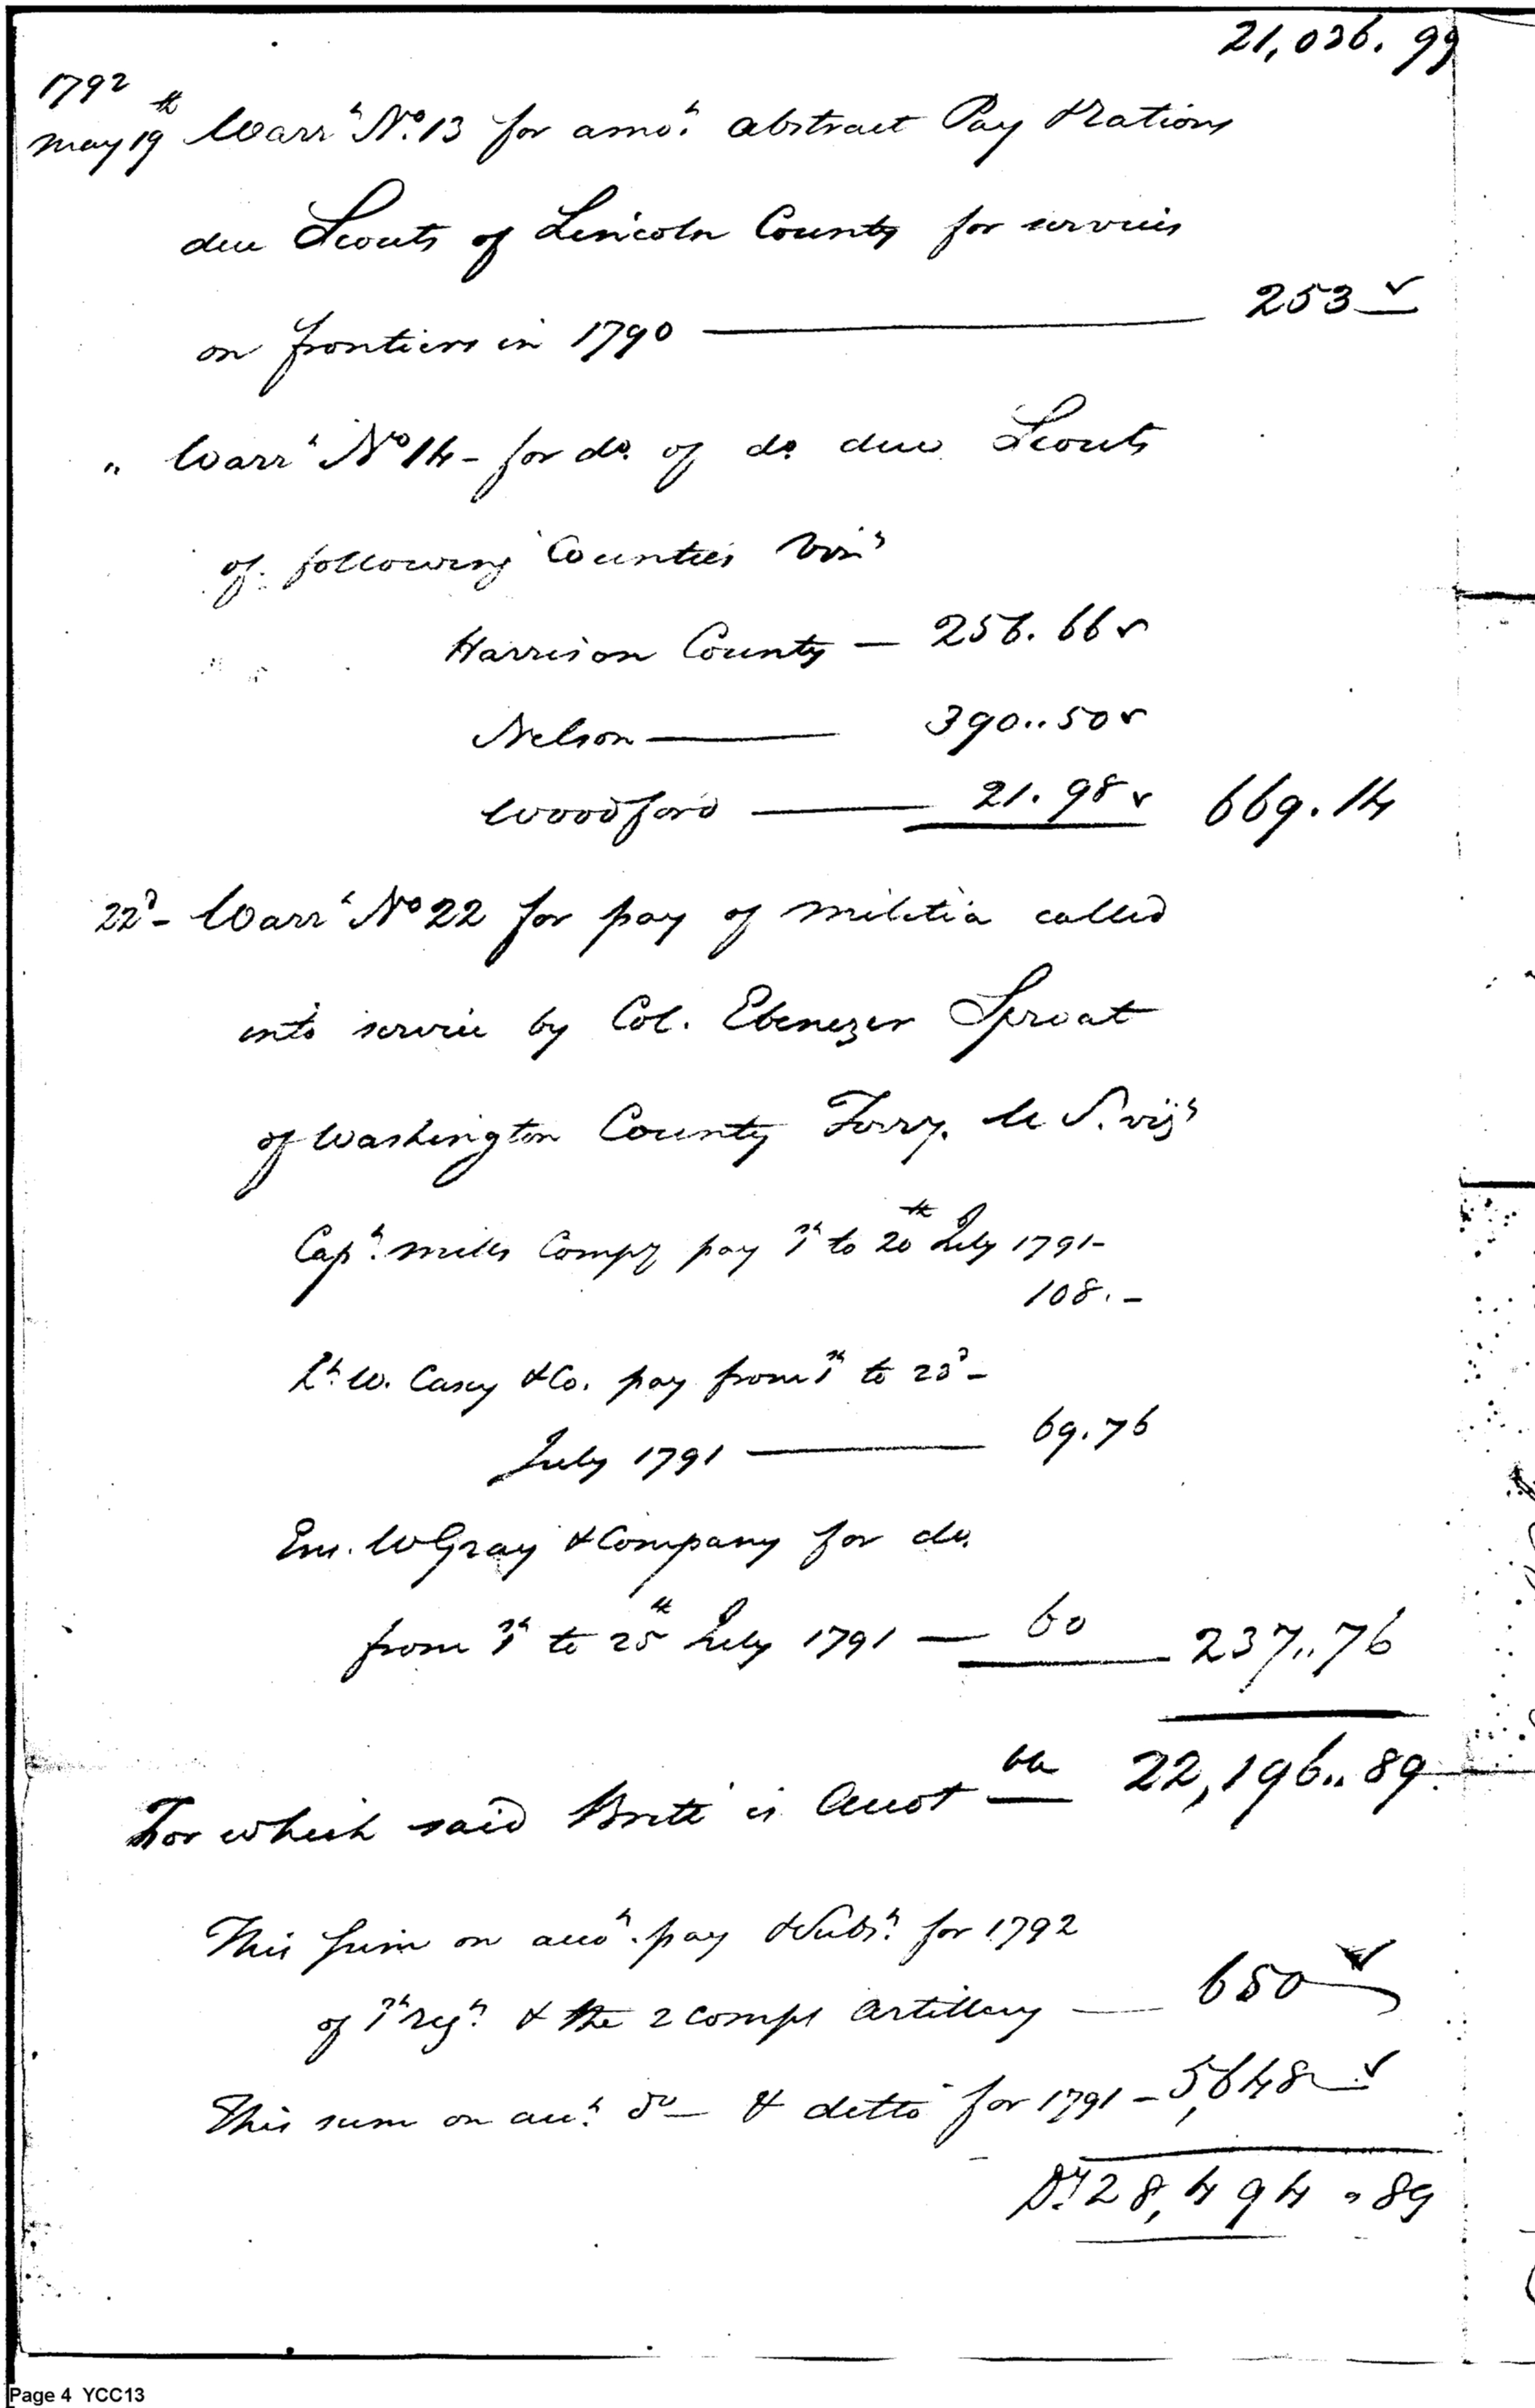 21,036. 99
1792
May 19th Warrt No. 13 for amot. abstract Pay & Rations
due Scouts of Lincoln County for services
on frontiers in 1790 — 253
" Warrt No 14 - for do. of do. due Scouts
of following Counties vizt
Harrison County — 256. 66
Nelson — 390..50
Woodford — 21. 98 669. 14
22d - Warrt No 22 for pay of militia called
into service by Col. Ebenezer Sproat
of Washington County Terry. U S. vizt
Capt. Mills Compy pay 1st to 20th July 1791 -
108. -
Lt. W. Casey & Co. pay from 1st to 23d -
July 1791 — 69. 76
Ens. W Gray & Company for do.
from 1st to 25th July 1791 — 60 237..76
For which said Britt is Accot 22,196..89
This sum on acct. pay & Subt. for 1792
of 1st regt. & the 2 comps artillery — 650
This sum on act. do — & ditto for 1791 - 5,648
28,494 . 89
Page 4 YCC13